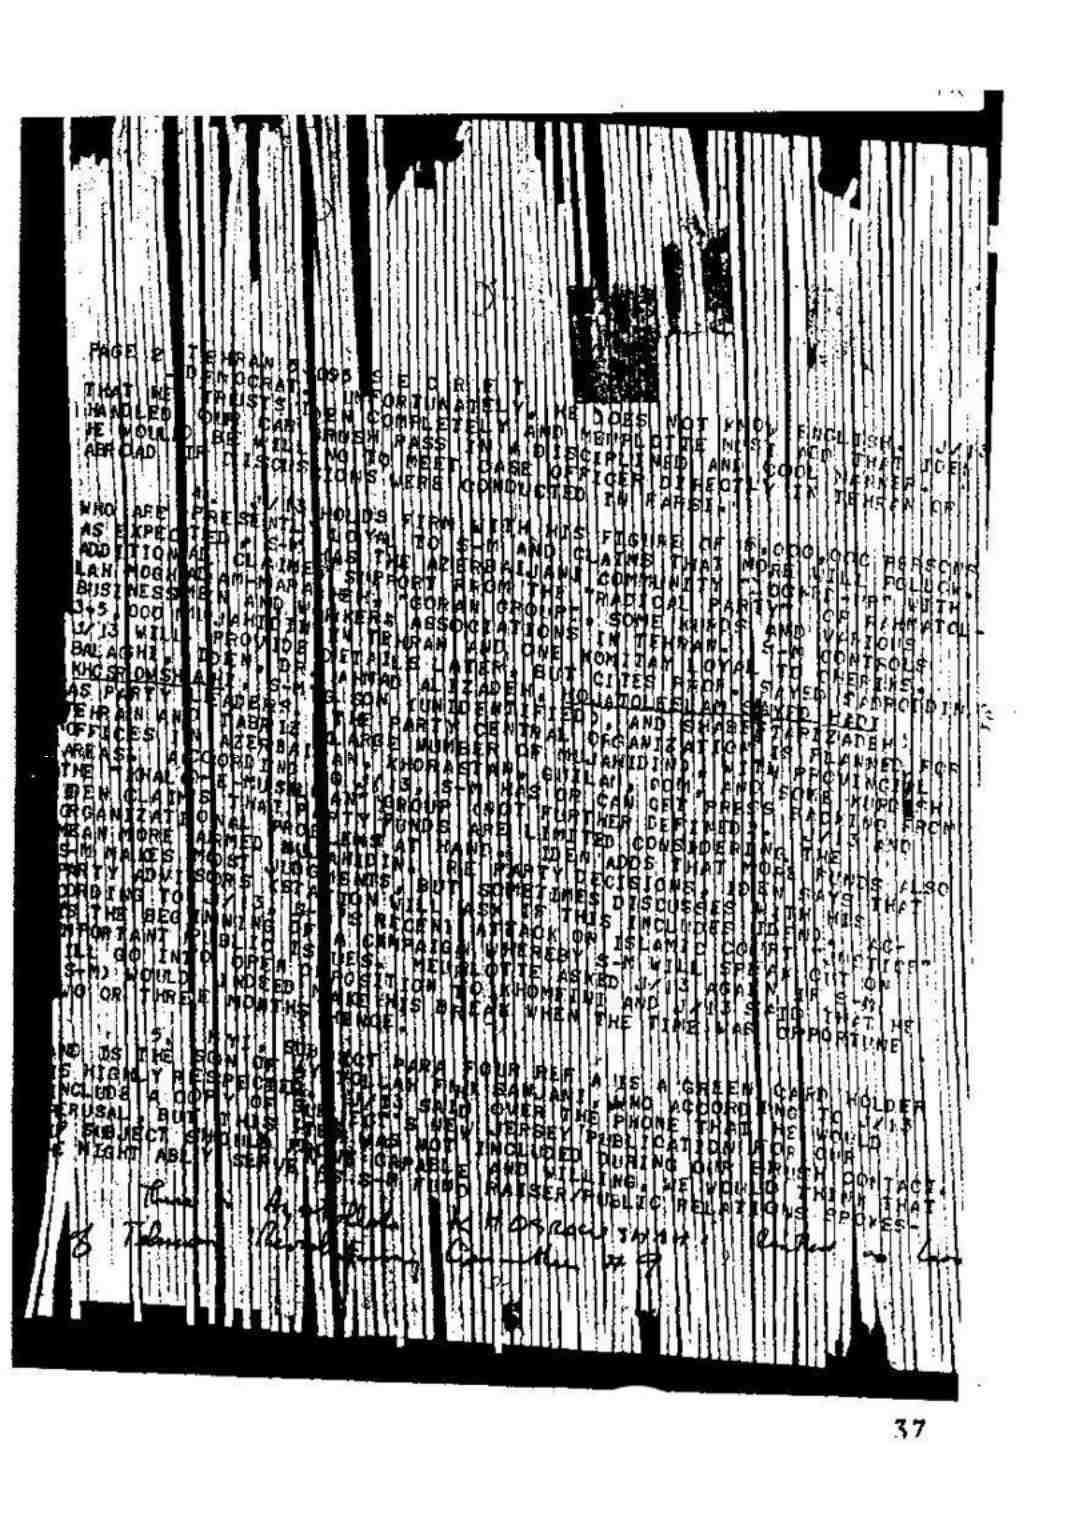 PAGE 2 TEHRAN 5 095 S E C R E T
DEMOCRAT. UNFORTUNATELY, HE DOES NOT KNOW ENGLISH. J/13
THAT HE TRUSTS IDEN COMPLETELY AND
HANDLED OUR CAR BRUSH PASS IN A DISCIPLINED AND COOL MANNER.
HE WOULD BE WILLING TO MEET CASE OFFICER DIRECTLY IN TEHRAN OR
ABROAD IF DISCUSSIONS WERE CONDUCTED IN FARSI.
4. J/13 HOLDS FIRM WITH HIS FIGURE OF 6,000,000 PERSONS
WHO ARE PRESENTLY LOYAL TO S-M AND CLAIMS THAT MORE WILL FOLLOW.
AS EXPECTED, S-M HAS THE AZERBAIJANI COMMUNITY LOCKED-UP WITH
ADDITIONAL CLAIMED SUPPORT FROM THE "RADICAL PARTY" OF RAHMATOL-
LAH MOGHADAM-MARAGHEH, "GORAN GROUP", SOME KURDS AND VARIOUS
BUSINESSMEN AND WORKERS ASSOCIATIONS IN TEHRAN. S-M CONTROLS
345,000 MUJAHIDIN IN TEHRAN AND ONE KOMITAY LOYAL TO CHERIKS.
J/13 WILL PROVIDE DETAILS LATER, BUT CITES PROF. SAYED SADROIDDIN
BALAGHI, IDEN, DR. AHMAD ALIZADEH, HOJATOLESLAM SAYED HADI
KHOSROWSHAHI, S-M'S SON (UNIDENTIFIED) AND SHABESTARIZADEH
AS PARTY LEADERS. THE PARTY CENTRAL ORGANIZATION IS PLANNED FOR
TEHRAN AND TABRIZ LARGE NUMBER OF MUJAHIDIN, WITH PROVINCIAL
OFFICES IN AZERBAIJAN, KHORASTAN, GUILAN, QOM, REST AND KURDISH
AREAS. ACCORDING J/13, S-M HAS OR CAN GET PRESS BACKING FROM
THE "KHALQ-E-MUSLIMAN" GROUP (NOT FURTHER DEFINED). J/13 AND
IDEN CLAIMS THAT PARTY FUNDS ARE LIMITED CONSIDERING THE
ORGANIZATIONAL PROBLEMS AT HAND. IDEN ADDS THAT MORE FUNDS ALSO
MEAN MORE ARMED MUJAHIDIN. RE PARTY DECISIONS, IDEN SAYS THAT
S-M MAKES MOST JUDGMENTS, BUT SOMETIMES DISCUSSES WITH HIS
PARTY ADVISORS (STATION WILL ASK IF THIS INCLUDES IDEN). AC-
CORDING TO J/13, S-M'S RECENT ATTACK ON ISLAMIC COURT "JUSTICE"
IS THE BEGINNING OF A CAMPAIGN WHEREBY S-M WILL SPEAK OUT ON
IMPORTANT PUBLIC ISSUES. ASKED J/13 AGAIN IF S-M
WILL GO INTO OPEN OPPOSITION TO KHOMEINI AND J/13 SAID THAT HE
(S-M) WOULD INDEED MAKE HIS BREAK WHEN THE TIME WAS OPPORTUNE
TWO OR THREE MONTHS HENCE.
5. FYI, SUBJECT PARA FOUR REF A IS A GREEN CARD HOLDER
AND IS THE SON OF AYATOLLAH WHO ACCORDING TO J/13
IS HIGHLY RESPECTED. J/13 SAID OVER THE PHONE THAT HE WOULD
INCLUDE A COPY OF SUBJECT'S NEW JERSEY PUBLICATION FOR OUR
PERUSAL, BUT THIS ITEM WAS NOT INCLUDED DURING OUR BRUSH CONTACT.
IF SUBJECT SHOULD PROVE CAPABLE AND WILLING, WE WOULD THINK THAT
HE MIGHT ABLY SERVE AS S-M FUND RAISER/PUBLIC RELATIONS SPOKES-
There is Ayatollah KHOSROWSHAHI,
of Tehran Revolutionary Committee # 9
37